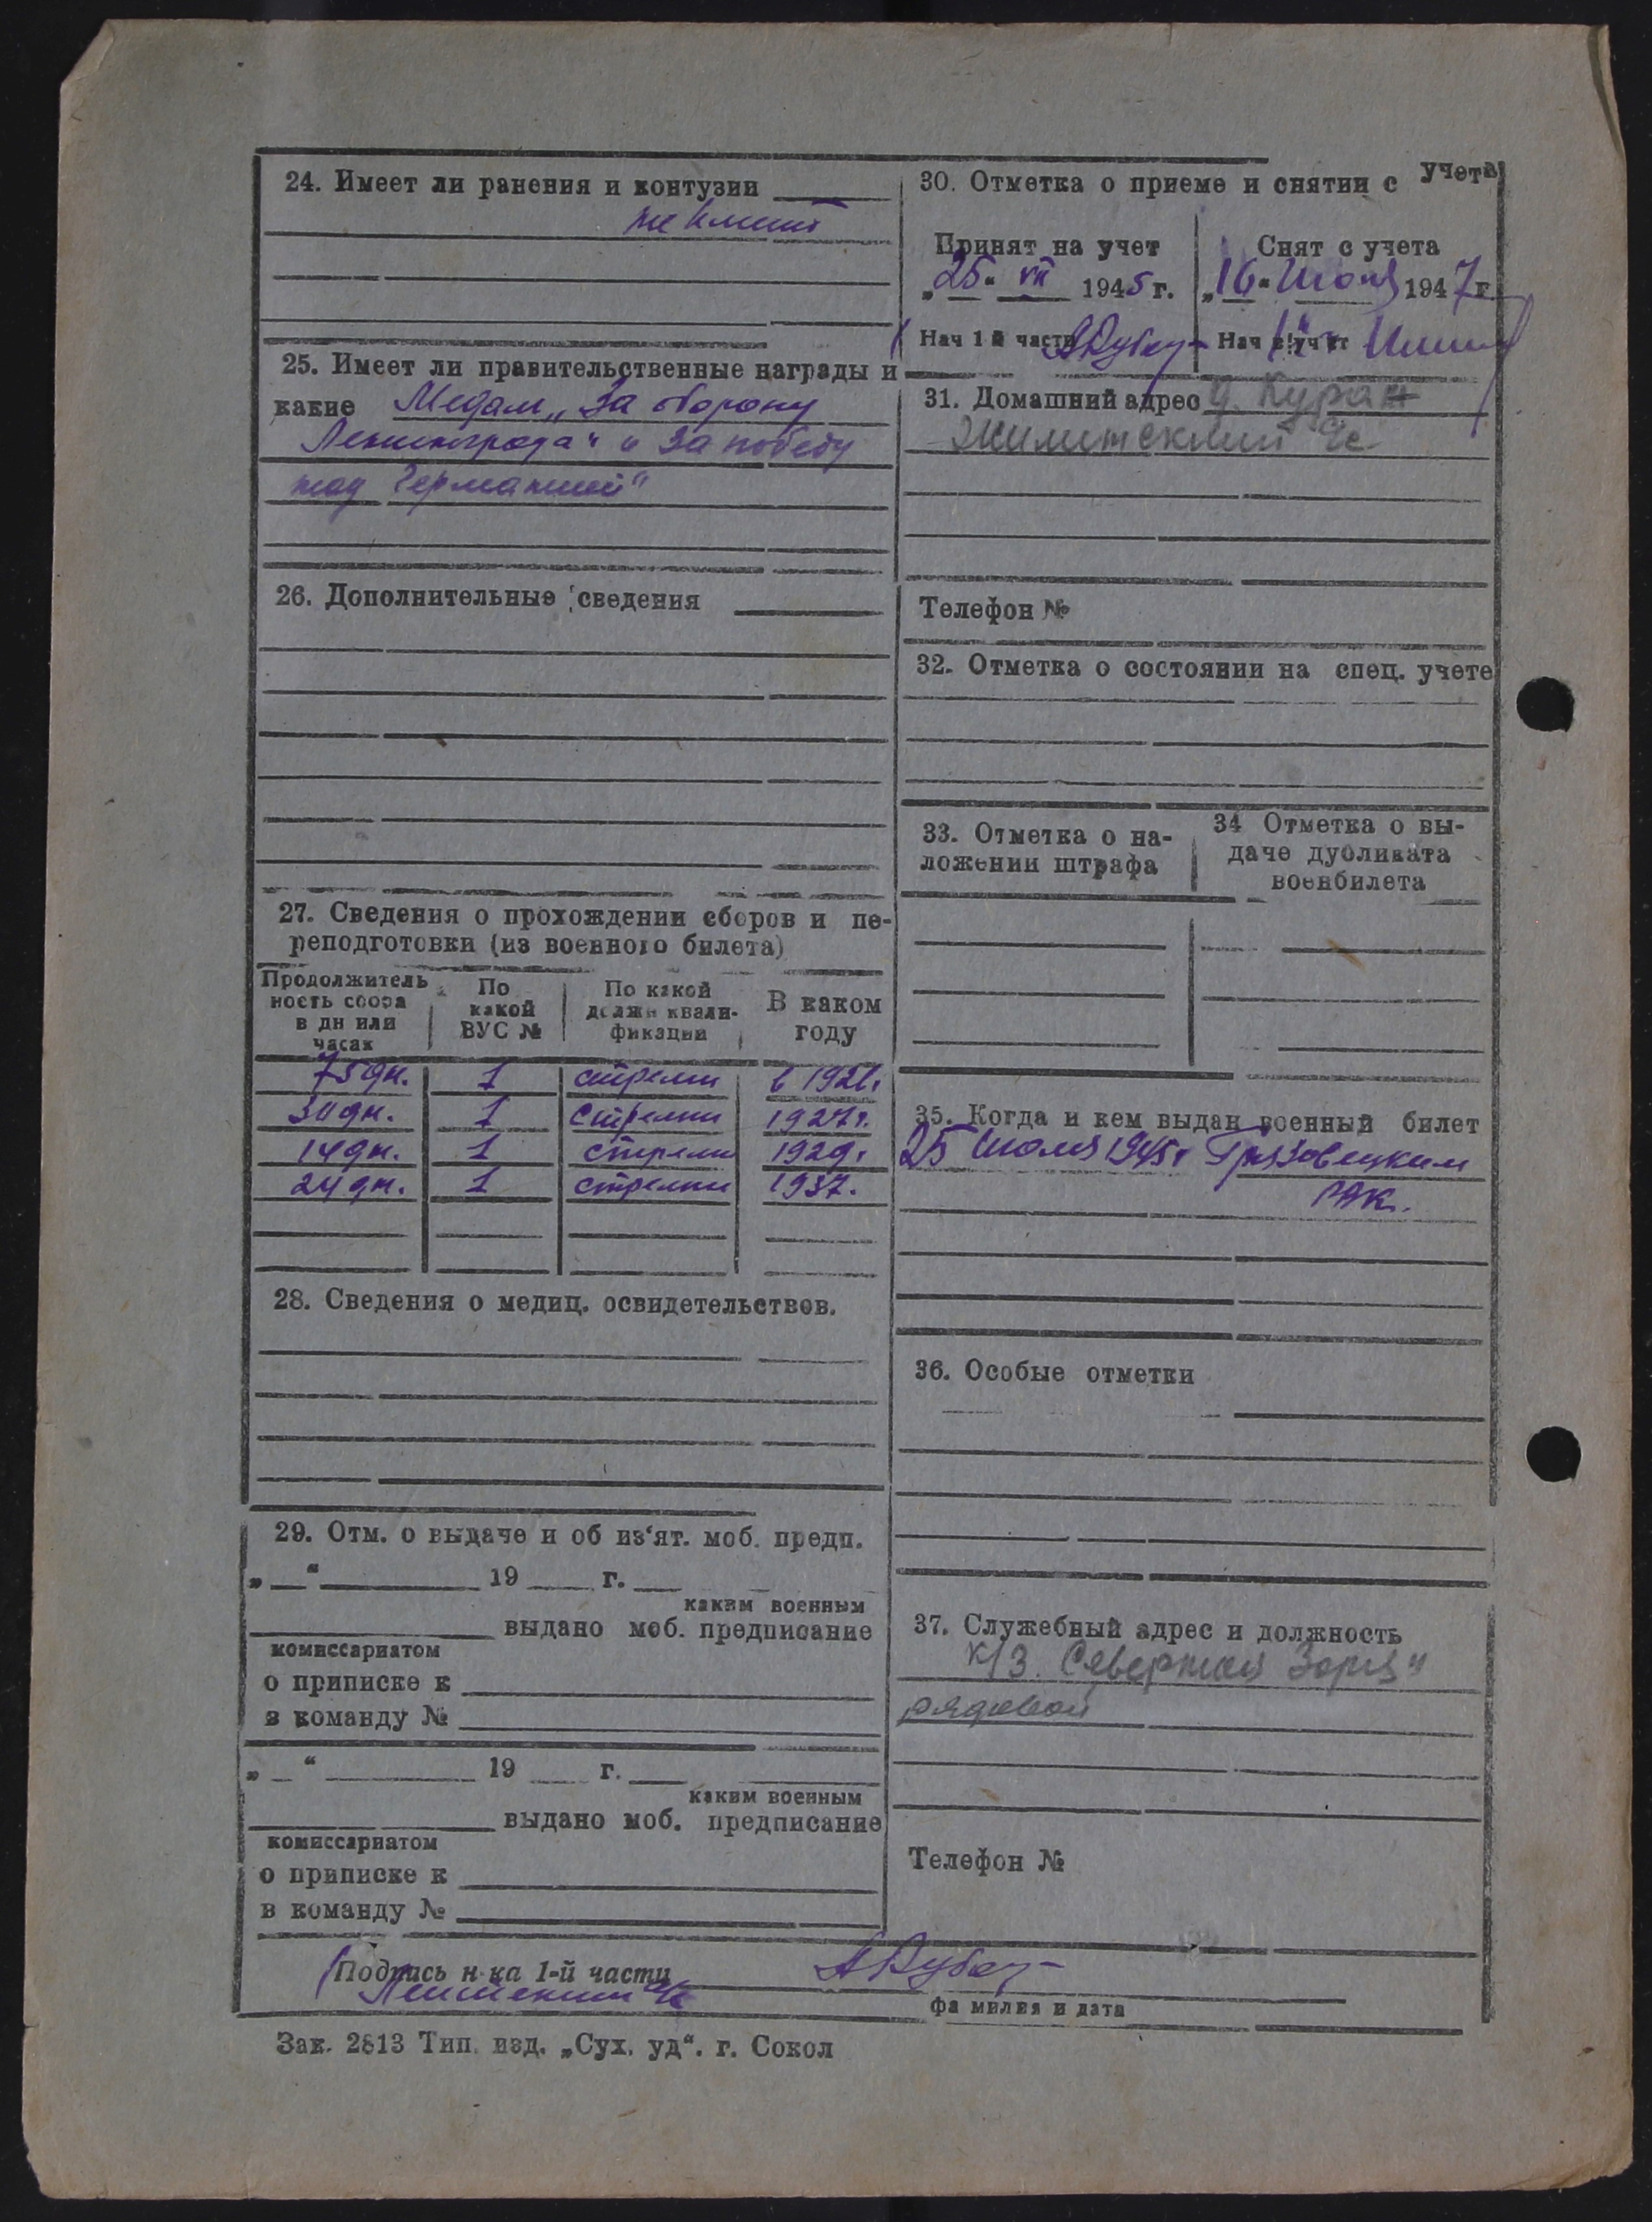 24. Имеет ли ранения и контузии
не имеет
25. Имеет ли правительственные награды и
какие Медали „За оборону
Ленинграда“ и За победу
над Германией“
26. Дополнительные сведения
27. Сведения о прохождении сборов и пе-
реподготовки (из военного билета)
Продолжитель
ность сбора
в дн или
часах
По
какой
ВУС №
По какой
должн квали-
фикации
В каком
году
75 дн. 1 стрелки в 1926г
30 дн. 1 стрелки 1927г.
14 дн. 1 стрелки 1929г
24 дн. 1 стрелки 1937.
28. Сведения о медиц. освидетельствов.
29. Отм. о выдаче и об из‘ят. моб. предп.
„ “ 19 г.
каким военным
выдано моб. предписание
комиссариатом
о приписке к
в команду №
„ “ 19 г.
каким военным
выдано моб. предписание
комиссариатом
о приписке к
в команду №
30. Отметка о приеме и снятии с учета
Принят на учет
„25“ VII 1945 г.
Нач 1 й части
Снят с учета
„16“ Июня 1947 г
Нач
31. Домашний адрес д.
с/с
Телефон №
32. Отметка о состоянии на спец. учете
33. Отметка о на-
ложении штрафа
34 Отметка о вы-
даче дубликата
военбилета
35. Когда и кем выдан военный билет
25 Июля 1945г Грязовецким
РВК.
36. Особые отметки
37. Служебный адрес и должность
к/з. Северная Заря“
рядовой
Телефон №
Подпись н-ка 1-й части
фамилия и дата
Зак. 2813 Тип. изд. „Сух. уд“. г. Сокол